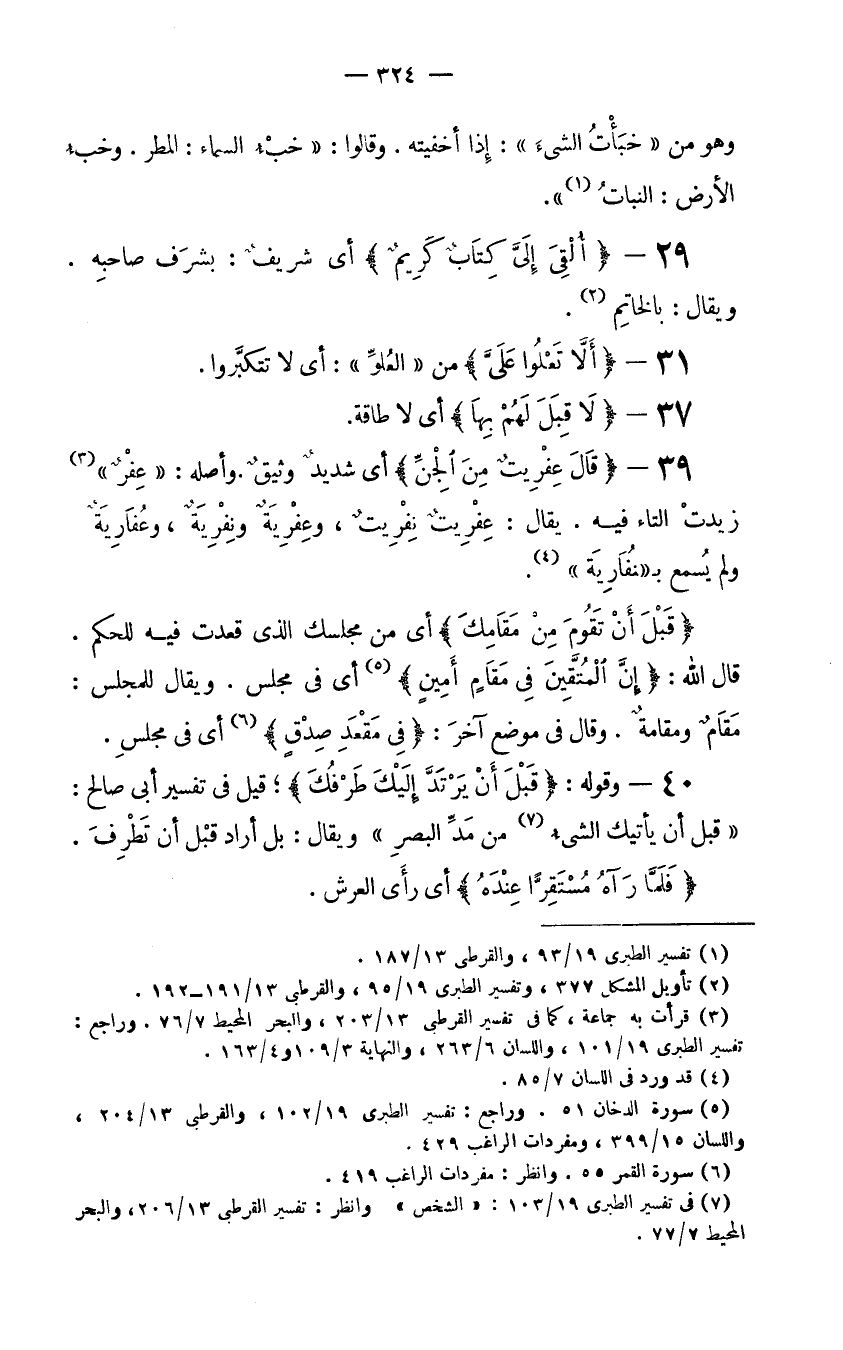 — ٣٢٤ —
وهو من « خَبَأْتُ الشىءَ » : إِذا أخفيته . وقالوا : « خَبْءُ السماء : المطر . وخبء
الأرض : النباتُ (١) ».
٢٩ — ﴿ أُلْقِىَ إِلَىَّ كِتَابٌ كَرِيمٌ ﴾ أى شريفٌ : بشرَف صاحبِه .
ويقال : بالخاتِمِ (٢) .
٣١ — ﴿ أَلَّا تَعْلُوا عَلَىَّ ﴾ من « العُلوِّ » : أى لا تتكبَّروا .
٣٧ — ﴿ لَا قِبَلَ لَهُمْ بِهَا ﴾ أى لا طاقة.
٣٩ — ﴿ قَالَ عِفْرِيتٌ مِنَ ٱلْجِنِّ ﴾ أى شديدٌ وثيقٌ . وأصله : « عِفْرٌ » (٣)
زيدتْ التاء فيــه . يقال : عِفْرِيتٌ نِفْرِيتٌ ، وعِفْرِيَةٌ ونِفْرِيَةٌ ، وعُفَارِيَةٌ
ولم يُسمع بـ«نُفَارِيَة » (٤) .
﴿ قَبْلَ أَنْ تَقُومَ مِنْ مَقَامِكَ ﴾ أى من مجلسك الذى قعدت فيــه للحكم .
قال الله : ﴿ إِنَّ ٱلْمُتَّقِينَ فِى مَقَامٍ أَمِينٍ ﴾ (٥) أى فى مجلس . ويقال للمجلس :
مَقَامٌ ومقامةٌ . وقال فى موضع آخرَ : ﴿ فِى مَقْعَدِ صِدْقٍ ﴾ (٦) أى فى مجلسِ .
٤٠ — وقوله : ﴿ قَبْلَ أَنْ يَرْتَدَّ إِلَيْكَ طَرْفُكَ ﴾ ؛ قيل فى تفسير أبى صالح :
« قبل أن يأتيك الشىء (٧) من مَدِّ البصرِ » ويقال : بل أراد قبْل أن تَطْرِفَ .
﴿ فَلَمَّا رَآهُ مُسْتَقِرًّا عِنْدَهُ ﴾ أى رأَى العرش .
(١) تفسير الطبرى ٩٣/١٩ ، والقرطبى ١٨٧/١٣ .
(٢) تأويل المشكل ٣٧٧ ، وتفسير الطبرى ٩٥/١٩ ، والقرطبى ١٩١/١٣-١٩٢ .
(٣) قرأت به جماعة ، كما فى تفسير القرطبى ٢٠٣/١٣ ، والبحر المحيط ٧٦/٧ . وراجع :
تفسير الطبرى ١٠١/١٩ ، واللسان ٢٦٣/٦ ، والنهاية ١٠٩/٣ و١٦٣/٤ .
(٤) قد ورد فى اللسان ٨٥/٧ .
(٥) سورة الدخان ٥١ . وراجع : تفسير الطبرى ١٠٢/١٩ ، والقرطبى ٢٠٤/١٣ ،
واللسان ٣٩٩/١٥ ، ومفردات الراغب ٤٢٩ .
(٦) سورة القمر ٥٥ . وانظر : مفردات الراغب ٤١٩ .
(٧) فى تفسير الطبرى ١٠٣/١٩ : « الشخص » وانظر : تفسير القرطبى ٢٠٦/١٣ ، والبحر
المحيط ٧٧/٧ .